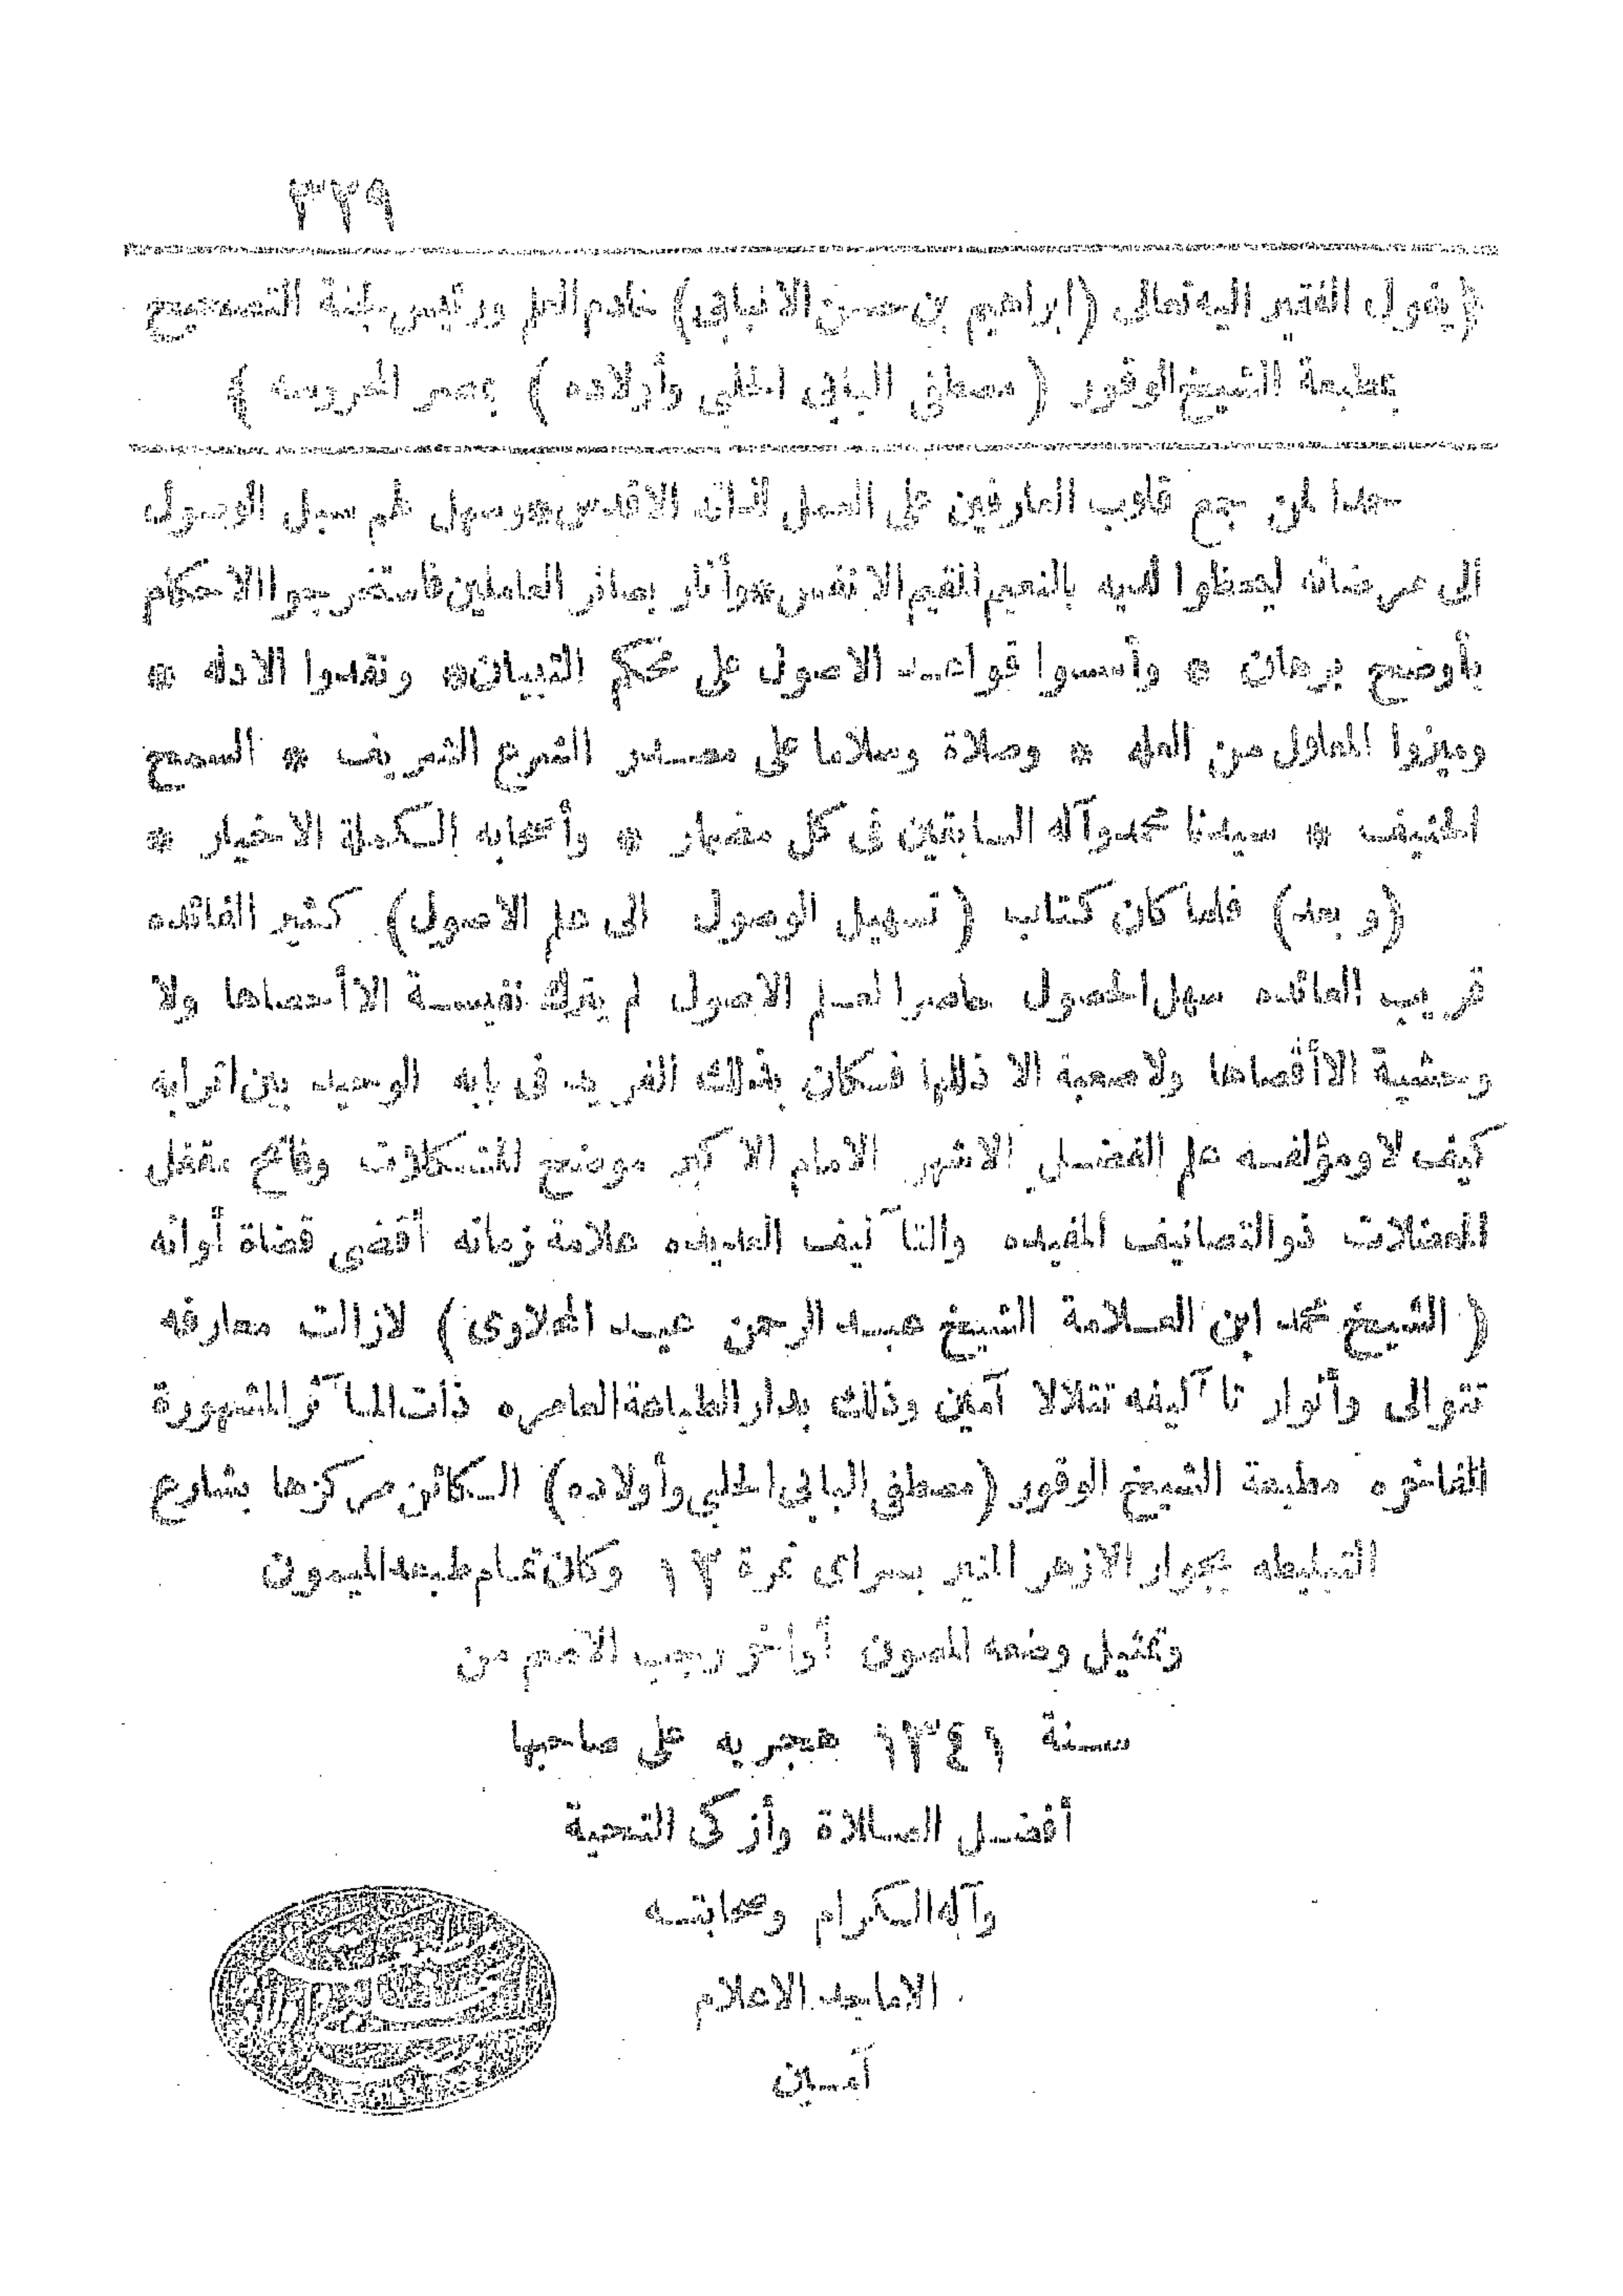 ٣٢٩
﴿يقول الفقير اليه تعالى (ابراهيم بن حسن الانبابى) خادم العلم ورئيس لجنة التصحيح
بمطبعة الشيخ الوقور (مصطفى البابى الحلبي وأولاده) بمصر المحروسه ﴾
حمدا لمن جمع قلوب العارفين على العمل لذاته الاقدس * وسهل لهم سبل الوصول
الى مرضاته ليحظوا لديه بالنعيم المقيم الانفس * وأنار بصائر العاملين فاستخرجوا الاحكام
بأوضح برهان * وأسسوا قواعد الاصول على محكم التبيان * ونقدوا الادله *
وميزوا المعلول من العله * وصلاة وسلاما على مصدر الشرع الشريف * السمح
الحنيف * سيدنا محمد وآله السابقين فى كل مضمار * وأصحابه الكملة الاخيار *
(وبعد) فلما كان كتاب (تسهيل الوصول الى علم الاصول) كثير الفائده
قريب العائده سهل الحصول حاصرا لعلم الاصول لم يترك نفيسة الا أحصاها ولا
وحشية الا أقصاها ولا صعبة الا ذللها فكان بذلك الفريد فى بابه الوحيد بين اترابه
كيف لا ومؤلفه علم الفضل الاشهر الامام الاكبر موضح المشكلات وفاتح مقفل
المعضلات ذو التصانيف المفيده والتآليف العديده علامة زمانه أقضى قضاة أوانه
(الشيخ محمد ابن العلامة الشيخ عبد الرحمن عيد المحلاوى) لازالت معارفه
تتوالى وأنوار تآليفه تتلالا آمين وذلك بدار الطباعة العامره ذات المآثر المشهورة
الفاخره مطبعة الشيخ الوقور (مصطفى البابى الحلبي وأولاده) الكائن مركزها بشارع
التبليطه بجوار الازهر المنير بسراى نمرة ١٣ وكان تمام طبعه الميمون
وتمثيل وضعه المصون أواخر رجب الاصم من
سنة ١٣٤١ هجريه على صاحبها
أفضل الصلاة وأزكى التحية
وآله الكرام وصحابته
الاماجد الاعلام
آمين